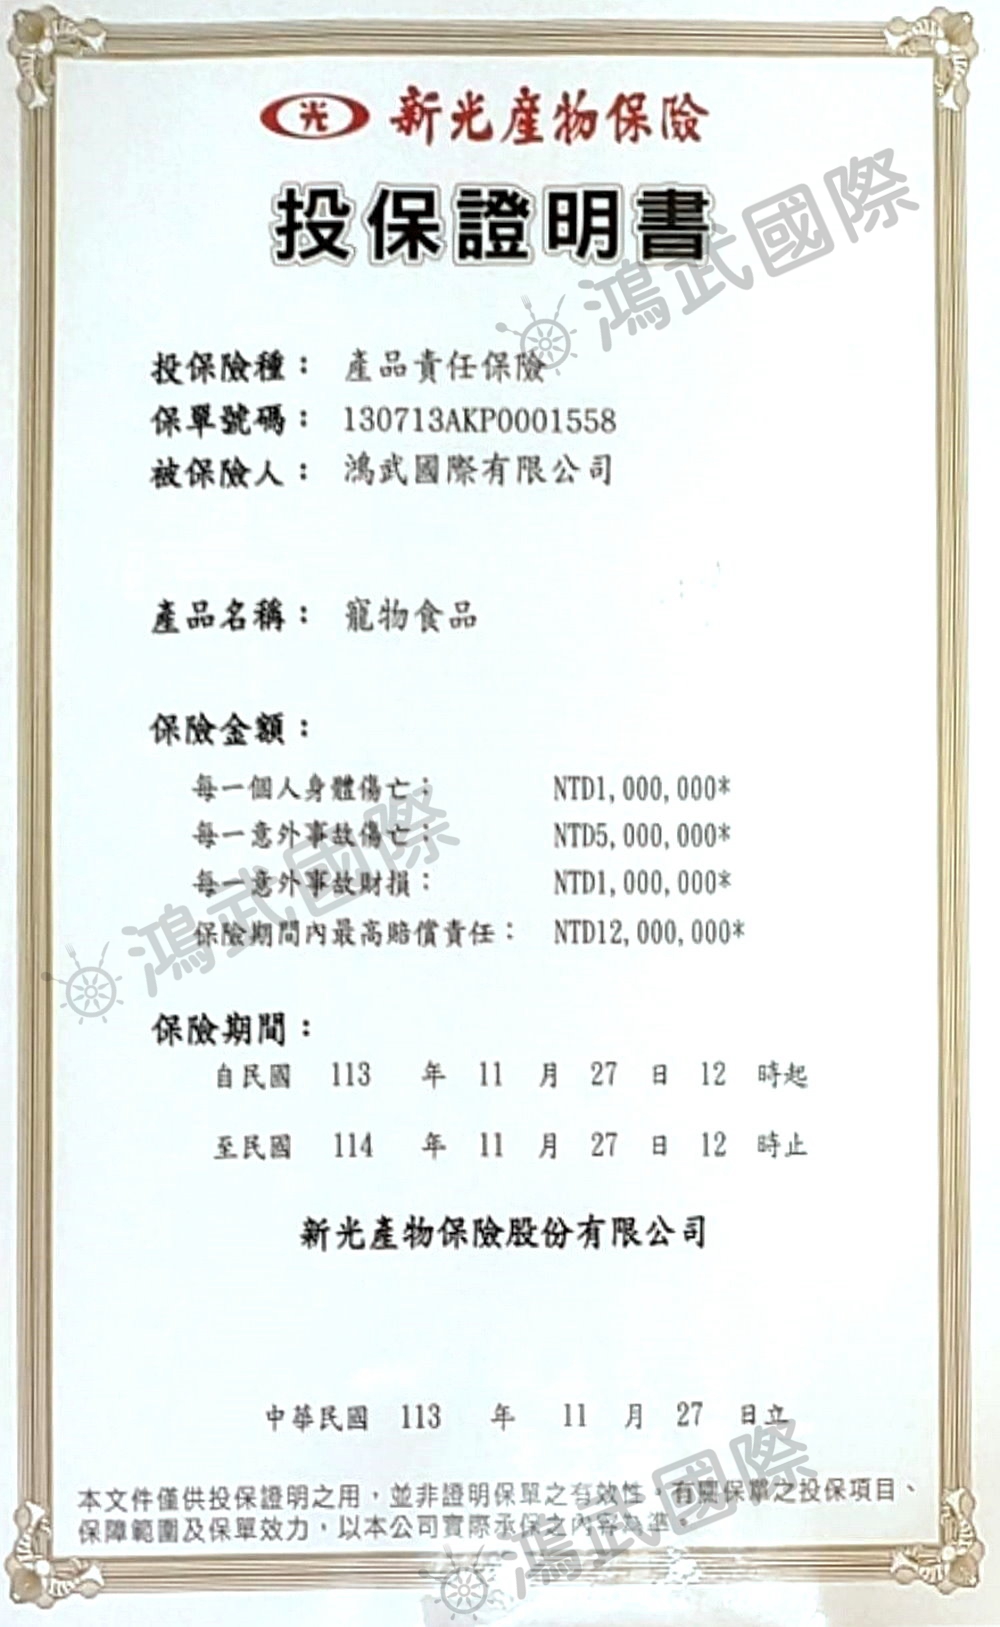 光 新光產物保險
投保證明書
鴻武國際
投保險種： 產品責任保險
保單號碼： 130713AKP0001558
被保險人： 鴻武國際有限公司
產品名稱： 寵物食品
保險金額：
每一個人身體傷亡： NTD1,000,000*
每一意外事故傷亡： NTD5,000,000*
每一意外事故財損： NTD1,000,000*
保險期間內最高賠償責任： NTD12,000,000*
鴻武國際
保險期間：
自民國 113 年 11 月 27 日 12 時起
至民國 114 年 11 月 27 日 12 時止
新光產物保險股份有限公司
中華民國 113 年 11 月 27 日立
本文件僅供投保證明之用，並非證明保單之有效性，有關保單之投保項目、
保障範圍及保單效力，以本公司實際承保之內容為準。
鴻武國際